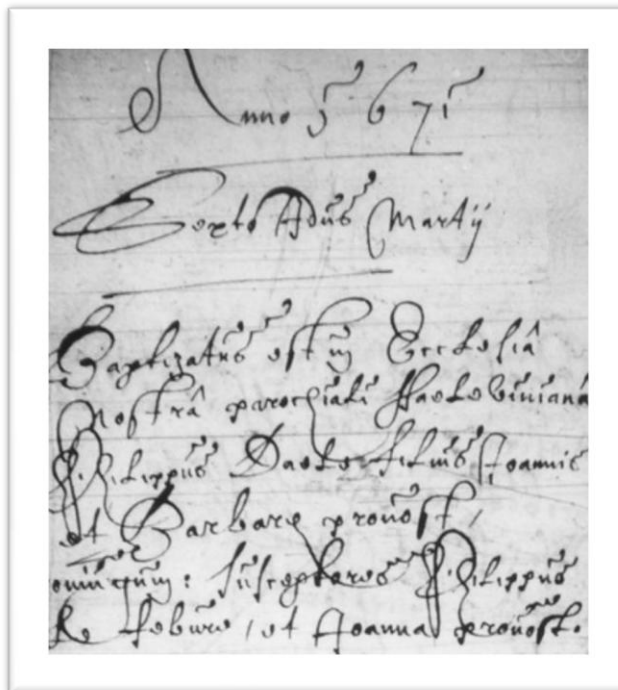 Anno 1671
Sexto Idus Martij
Baptizatus est in Ecclesiâ
nostrâ parochiali
Philippus filius Joannis
et Barbare provost,
susceptores Philippus
le febure, et Joanna provost.